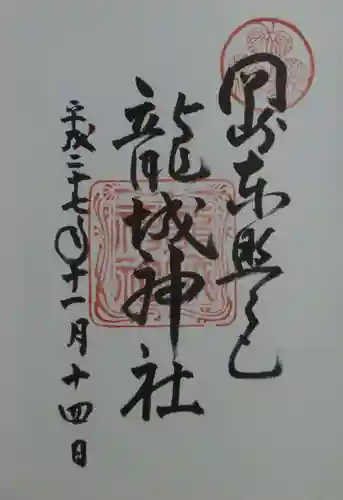 岡崎東照宮
龍城神社
平成二十七年十一月十四日